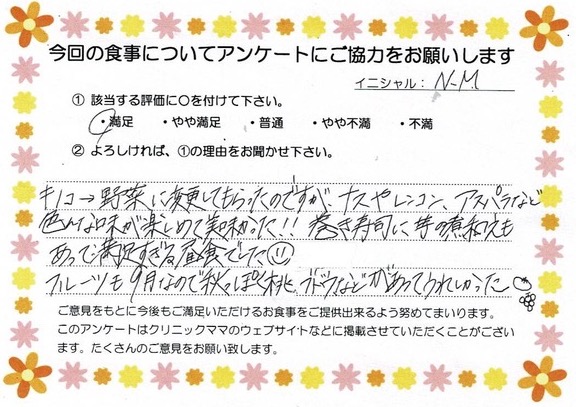 今回の食事についてアンケートにご協力をお願いします
イニシャル: N.M
① 該当する評価に○を付けて下さい。
・満足 ・やや満足 ・普通 ・やや不満 ・不満
② よろしければ、①の理由をお聞かせ下さい。
キノコ→野菜に変更してもらったのですが、ナスやレンコン、アスパラなど
色んな味が楽しめて美味かった!! 巻き寿司に芋の煮和えも
あって満足すぎる昼食でした
フルーツも9月なので秋っぽく桃、ブドウなどがあってうれしかった
ご意見をもとに今後もご満足いただけるお食事をご提供出来るよう努めてまいります。
このアンケートはクリニックママのウェブサイトなどに掲載させていただくことがござい
ます。たくさんのご意見をお願い致します。